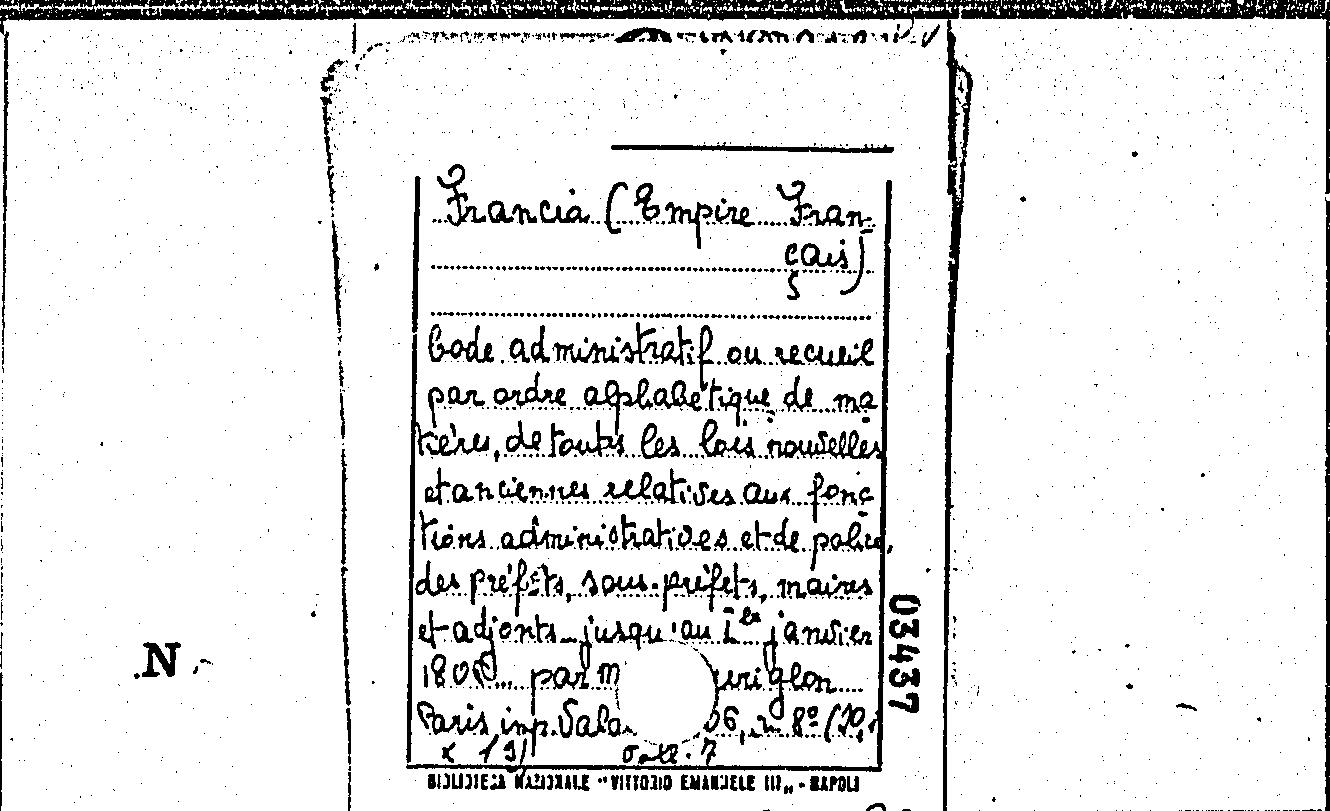 Francia (Empire Fran-
çais)
Code administratif ou recueil
par ordre alphabétique de ma
tières, de toutes les lois nouvelles
et anciennes relatives aux fonc
tions administratives et de police,
des préfets, sous-préfets, maires
et adjonts jusqu'au 1er janvier
par
Paris, imp. 8º
x 19)
BIBLIOTECA NAZIONALE "VITTORIO EMANUELE III" - NAPOLI
03437
N